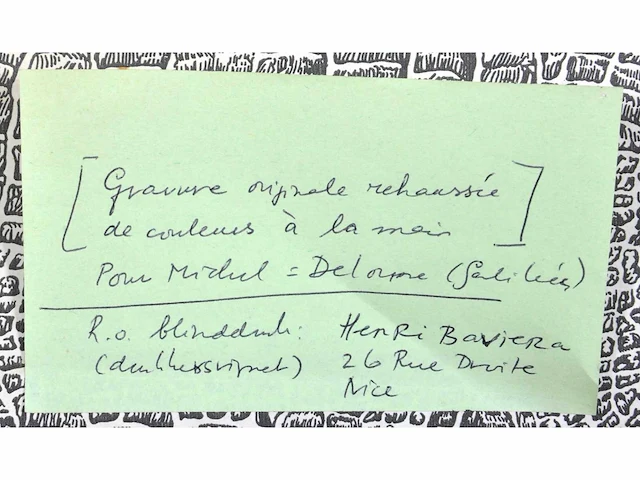 [ Gravure originale rehaussée
de couleurs à la main ]
Pour Michel = Delorme
R.o. blinddruk: Henri Baviera
26 Rue Droite
Nice